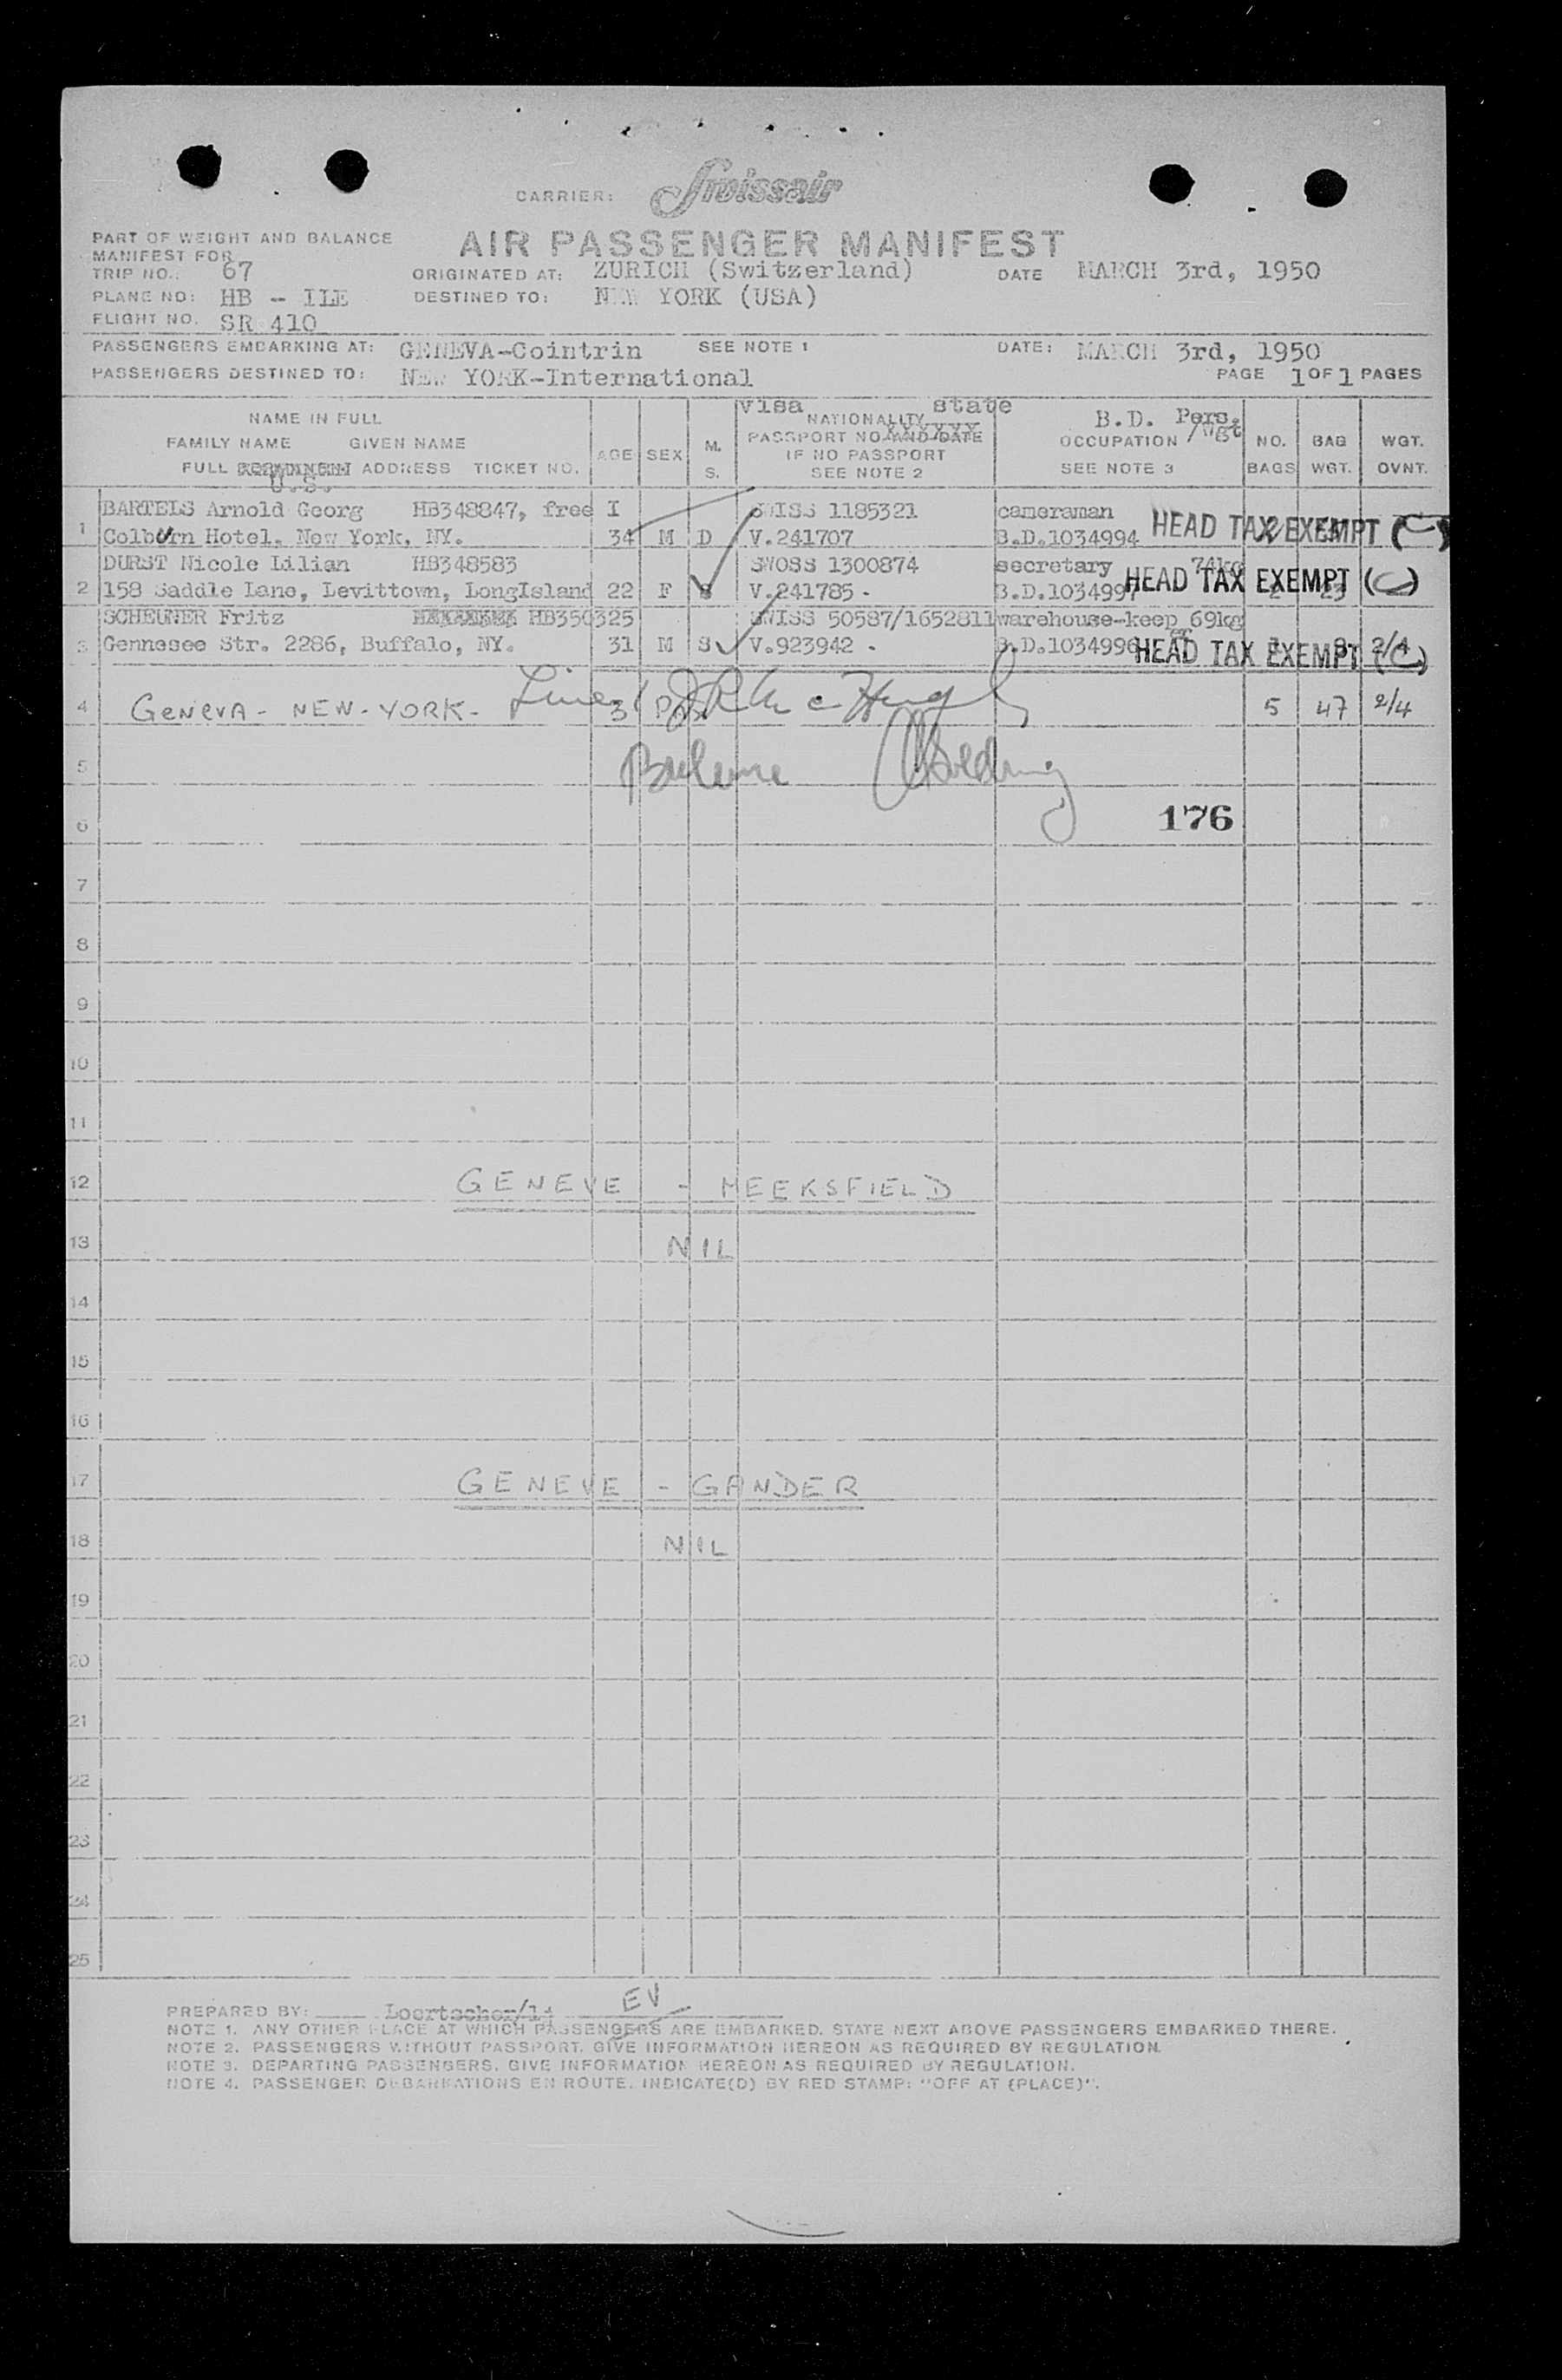 CARRIER: Swissair
AIR PASSENGER MANIFEST
PART OF WEIGHT AND BALANCE
MANIFEST FOR
TRIP NO.: 67 ORIGINATED AT: ZURICH (Switzerland) DATE MARCH 3rd, 1950
PLANE NO: HB - ILE DESTINED TO: NEW YORK (USA)
FLIGHT NO. SR 410
PASSENGERS EMBARKING AT: GENEVA-Cointrin SEE NOTE 1 DATE: MARCH 3rd, 1950
PASSENGERS DESTINED TO: NEW YORK-International PAGE 1 OF 1 PAGES
NAME IN FULL
FAMILY NAME GIVEN NAME
FULL ADDRESS TICKET NO.
U.S.
AGE SEX M. S.
visa state
NATIONALITY
PASSPORT NO. AND DATE
IF NO PASSPORT
SEE NOTE 2
B.D. Pers.
OCCUPATION /Wgt
SEE NOTE 3
NO. BAGS
BAG WGT.
WGT. OVNT.
BARTELS Arnold Georg HB348847, free I SWISS 1185321 cameraman
1 Colburn Hotel, New York, NY. 34 M D V.241707 B.D.1034994 HEAD TAX EXEMPT (C)
DURST Nicole Lilian HB348583 SWOSS 1300874 secretary 74kg
2 158 Saddle Lane, Levittown, LongIsland 22 F S V.241785 - B.D.1034997 HEAD TAX EXEMPT (C) 23
SCHEUNER Fritz HB350325 SWISS 50587/1652811 warehouse-keep 69kg
er
3 Gennesee Str. 2286, Buffalo, NY. 31 M S V.923942 - B.D.1034996 HEAD TAX EXEMPT (C) 2/4
4 GENEVA - NEW-YORK - 3 Pax 5 47 2/4
5
6 176
7
8
9
10
11
12 GENEVE - MEEKSFIELD
13 NIL
14
15
16
17 GENEVE - GANDER
18 NIL
19
20
21
22
23
24
25
PREPARED BY: Loertscher/ EV
NOTE 1. ANY OTHER PLACE AT WHICH PASSENGERS ARE EMBARKED. STATE NEXT ABOVE PASSENGERS EMBARKED THERE.
NOTE 2. PASSENGERS WITHOUT PASSPORT. GIVE INFORMATION HEREON AS REQUIRED BY REGULATION.
NOTE 3. DEPARTING PASSENGERS. GIVE INFORMATION HEREON AS REQUIRED BY REGULATION.
NOTE 4. PASSENGER DEBARKATIONS EN ROUTE. INDICATE(D) BY RED STAMP: "OFF AT (PLACE)".